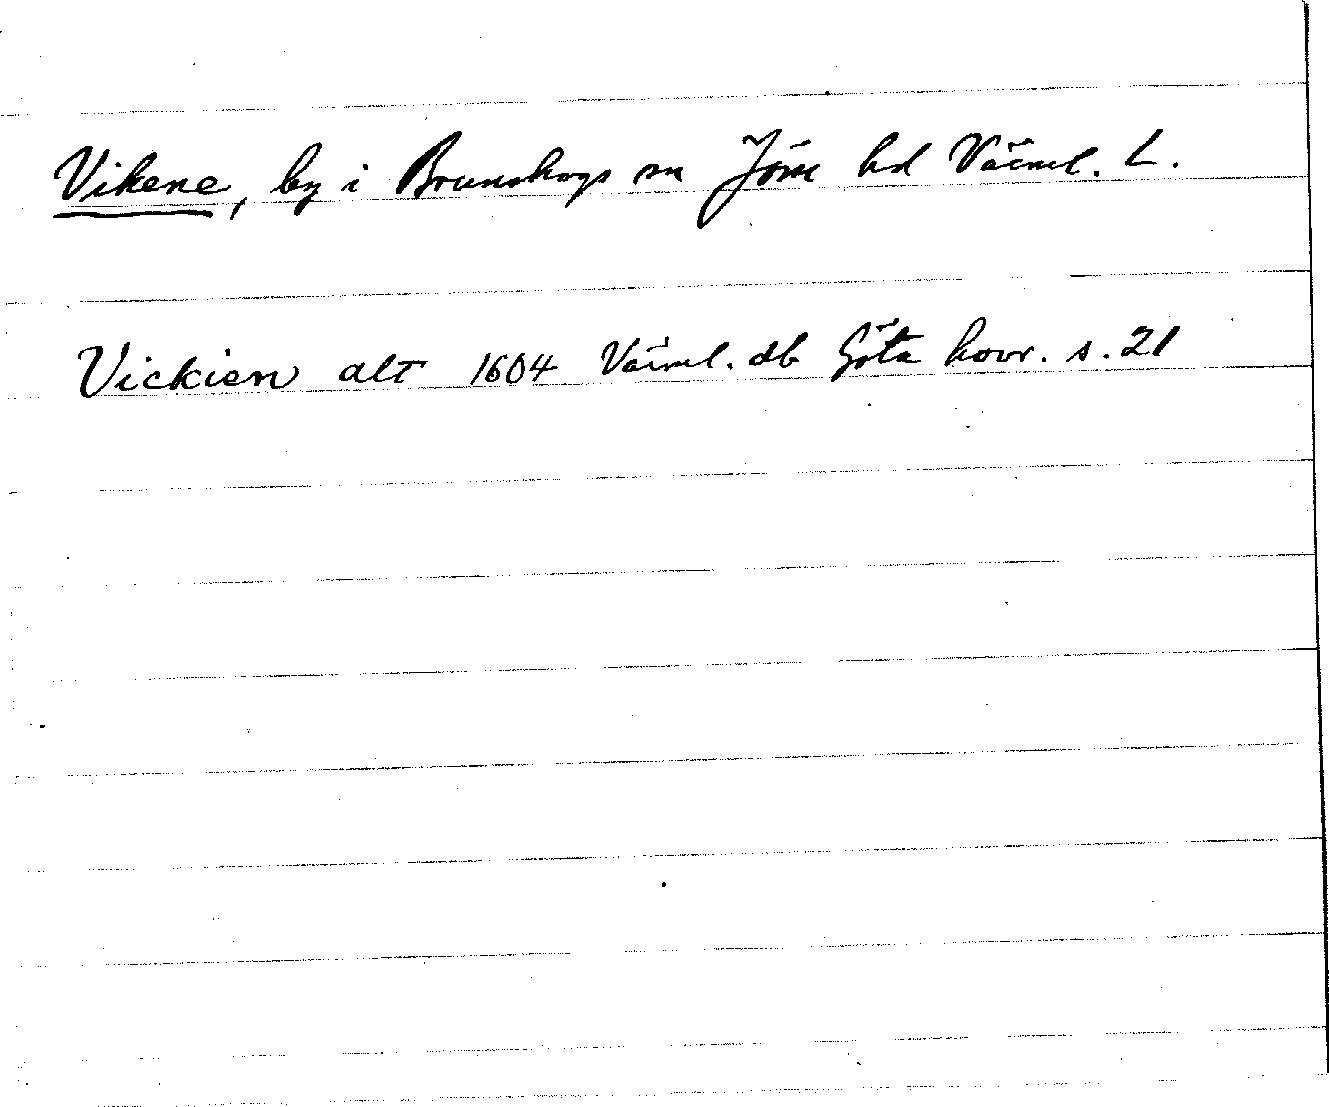 Vikene, by i Brunskogs sn Jösse hd Värml. L.
Vickien alt 1604 Värml. db Göta hovr. s. 21